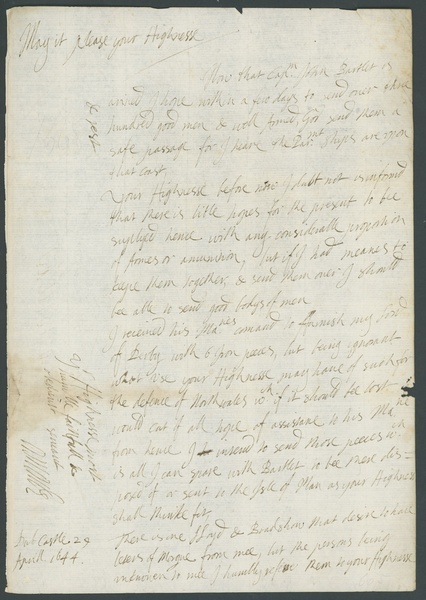 May it please your Highnesse
Now that Capt. John Bartlet is
arived I hope within a few days to send over three
hundred good men & well Armed, God send them a
safe passage for I heare the Parmt ships are upon
that coast.
Your Highnesse before now I doubt not is informd
that there is little hopes for the present to bee
suplied hence with any considerable proportion
of Armes or amunition, but if I had meanes to
keepe them together, & send them over I should
bee able to send good bodys of men
I received his Maties comand to furnish my Lord
of Derby with 6 Iron peeces, but being ignorant
what use your Highnesse may have of such for
the defence of Northwales wch if it should be lost
would cut of all hope of assistane to his Matie
from hence I intend to send those peeces wch
is all I can spare with Bartlet to bee there dis=
posed of or sent to the Isle of Man as your Highness
shall thinke fit.
There is one Lloyd & Bradshaw that desire to have
leters of Marque from mee, but the persons being
unknown to mee I humbly refer them to your Highnesse
& rest
Yr Highnesse most
faithfull &
servant
Dub: Castle. 29
April. 1644.